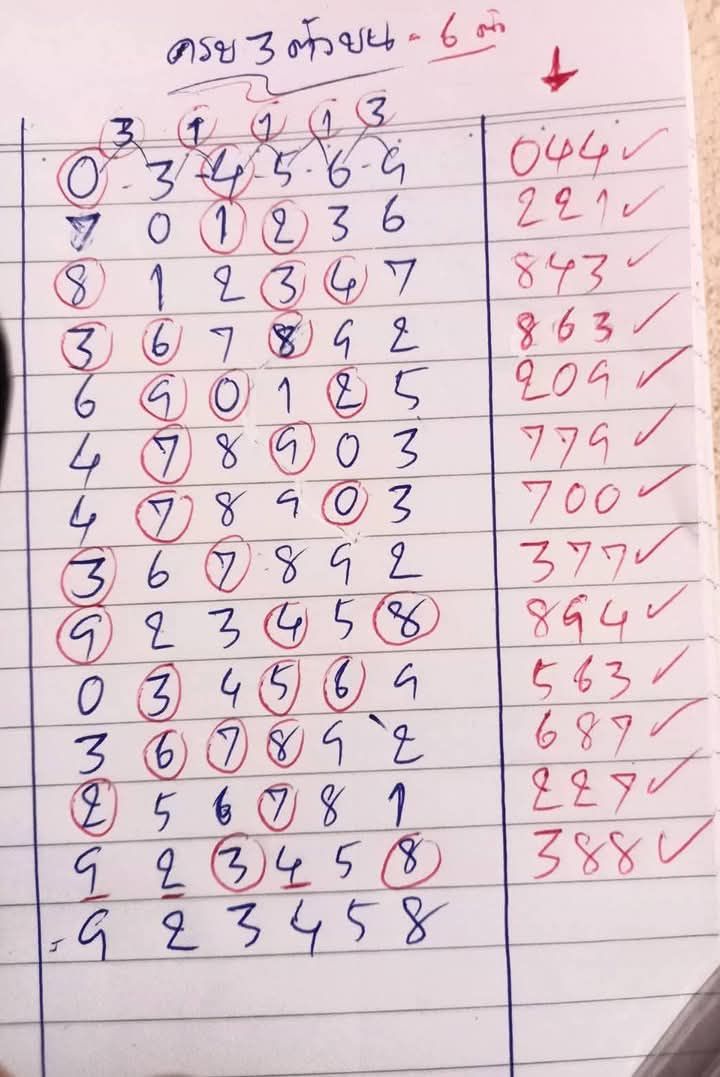 ครบ 3 ตัวบน - 6 ตัว
3 1 1 1 3
0 - 3 - 4 - 5 - 6 - 9 044 ✓
7 0 1 2 3 6 221 ✓
8 1 2 3 4 7 843 ✓
3 6 7 8 9 2 863 ✓
6 9 0 1 2 5 209 ✓
4 7 8 9 0 3 779 ✓
4 7 8 9 0 3 700 ✓
3 6 7 8 9 2 377 ✓
9 2 3 4 5 8 894 ✓
0 3 4 5 6 9 563 ✓
3 6 7 8 9 2 687 ✓
2 5 6 7 8 1 227 ✓
9 2 3 4 5 8 388 ✓
= 9 2 3 4 5 8